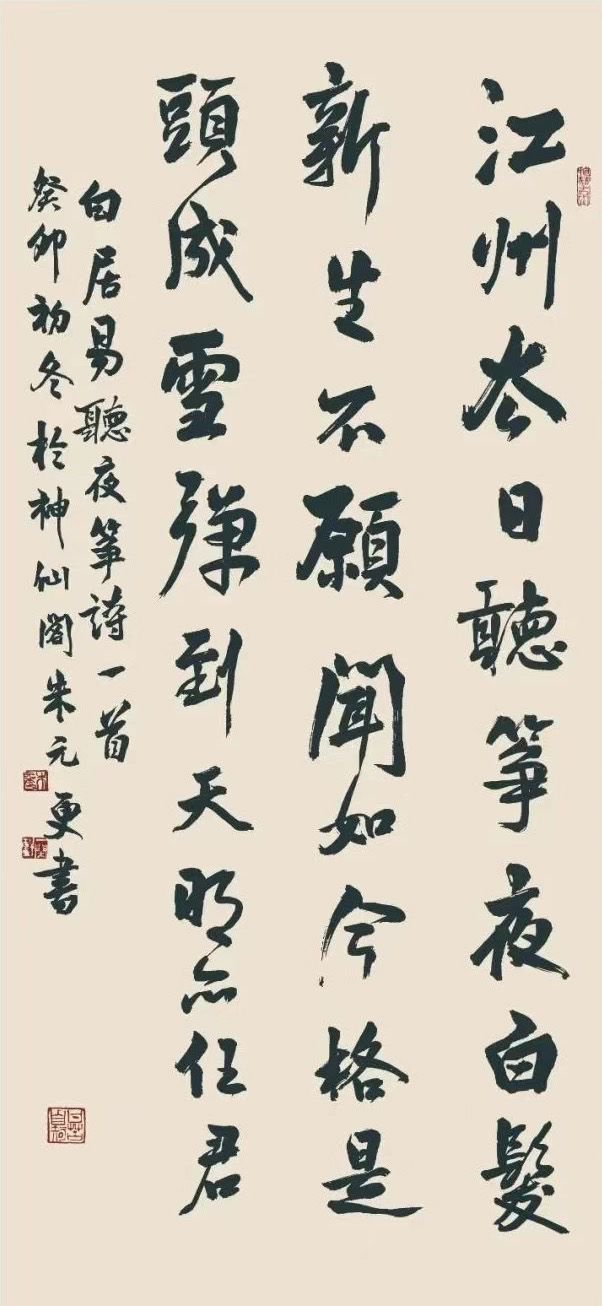 江州去日聽箏夜白髮
新生不願聞如今格是
頭成雪彈到天明亦任君
白居易聽夜箏詩一首
癸卯初冬於神仙閣朱元更書